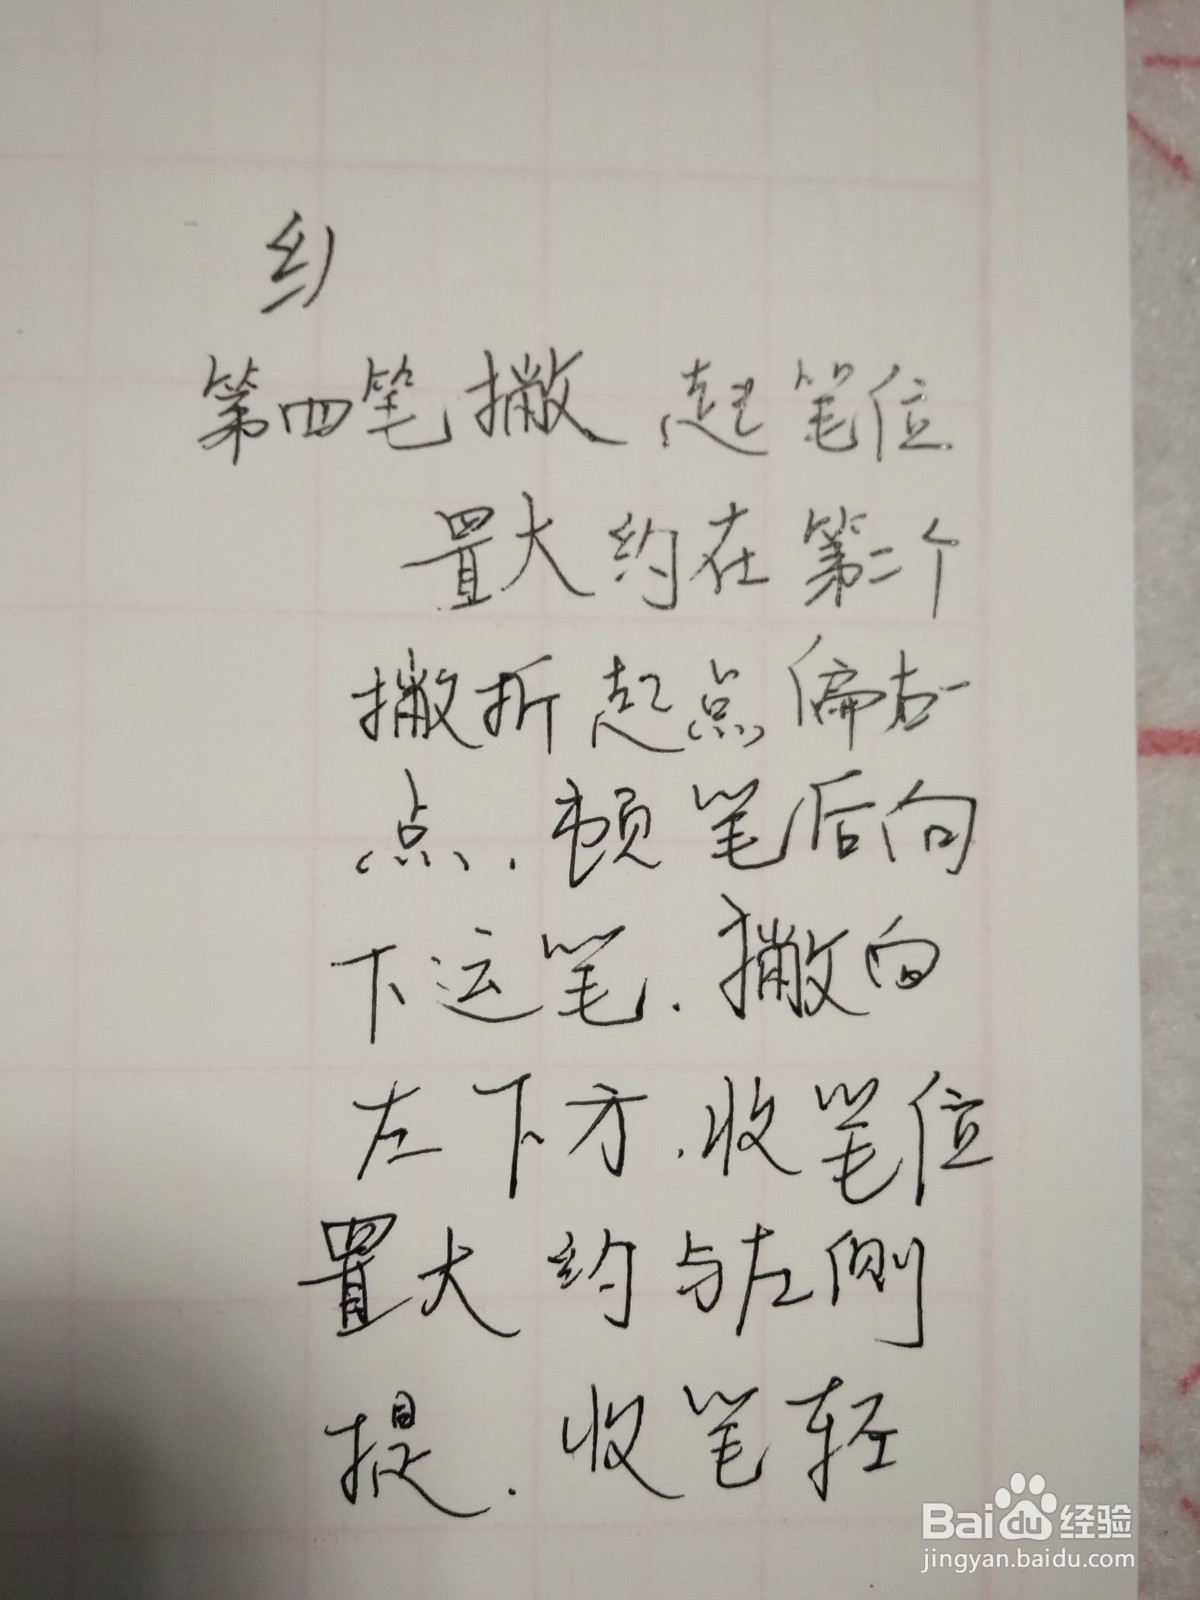 第四笔撇 起笔位
置大约在第二个
撇折起点偏右一
点.顿笔后向
下运笔.撇向
左下方.收笔位
置大约与左侧
提.收笔轻
Baidu经验
jingyan.baidu.com